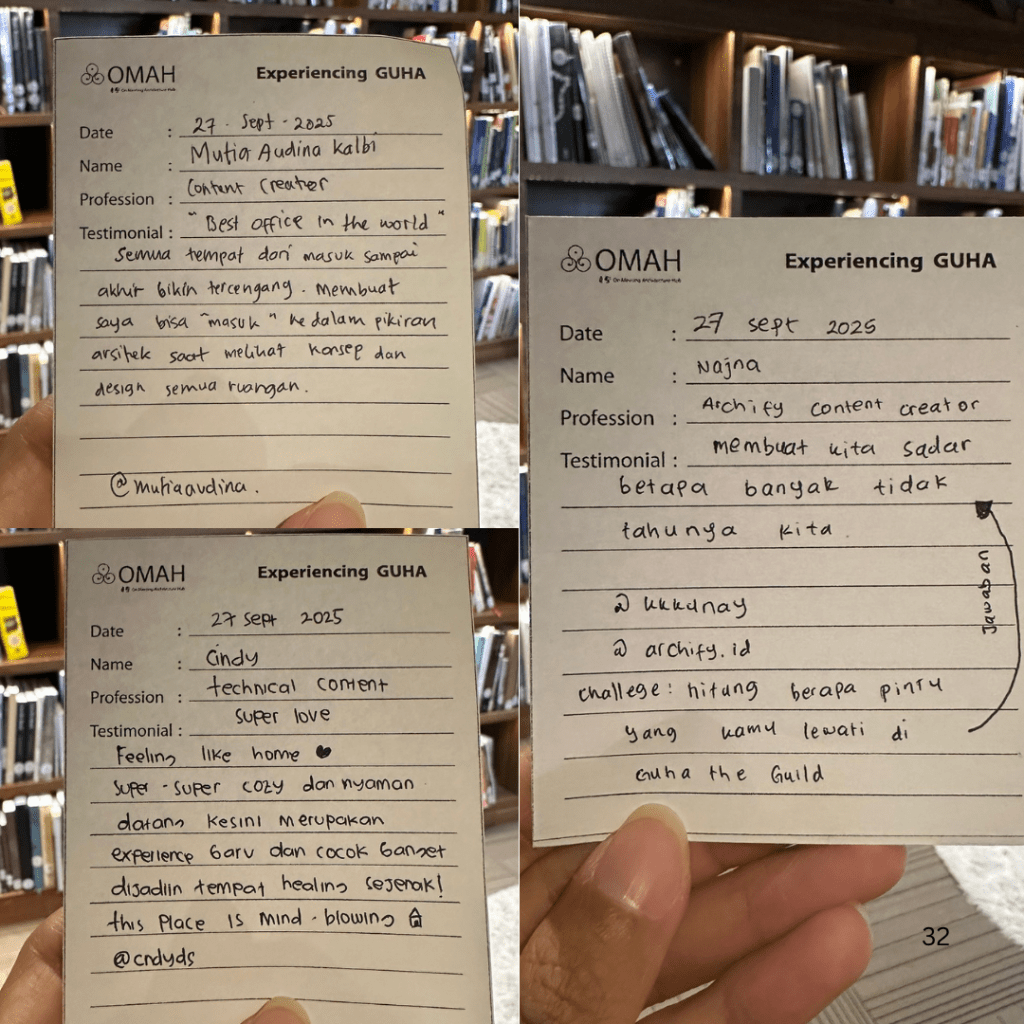 OMAH
On Moving Architecture Hub
Experiencing GUHA
Date : 27 - Sept - 2025
Name : Mutia Audina Kalbi
Profession : Content Creator
Testimonial : "Best office in the world"
Semua tempat dari masuk sampai
akhir bikin tercengang. Membuat
saya bisa "masuk" ke dalam pikiran
arsitek saat melihat konsep dan
design semua ruangan.
@mutiaaudina.
OMAH
On Moving Architecture Hub
Experiencing GUHA
Date : 27 sept 2025
Name : Cindy
Profession : technical content
Testimonial : super love
Feeling like home ♥
super - super cozy dan nyaman
datang kesini merupakan
experience baru dan cocok banget
dijadiin tempat healing sejenak!
this place is mind - blowing
@cndyds
OMAH
On Moving Architecture Hub
Experiencing GUHA
Date : 27 sept 2025
Name : Najna
Profession : Archify content creator
Testimonial : membuat kita sadar
betapa banyak tidak
tahunya kita.
@ kkkdnay
@ archify.id
challege : hitung berapa pintu
yang kamu lewati di
Guha the Guild
Jawaban
32